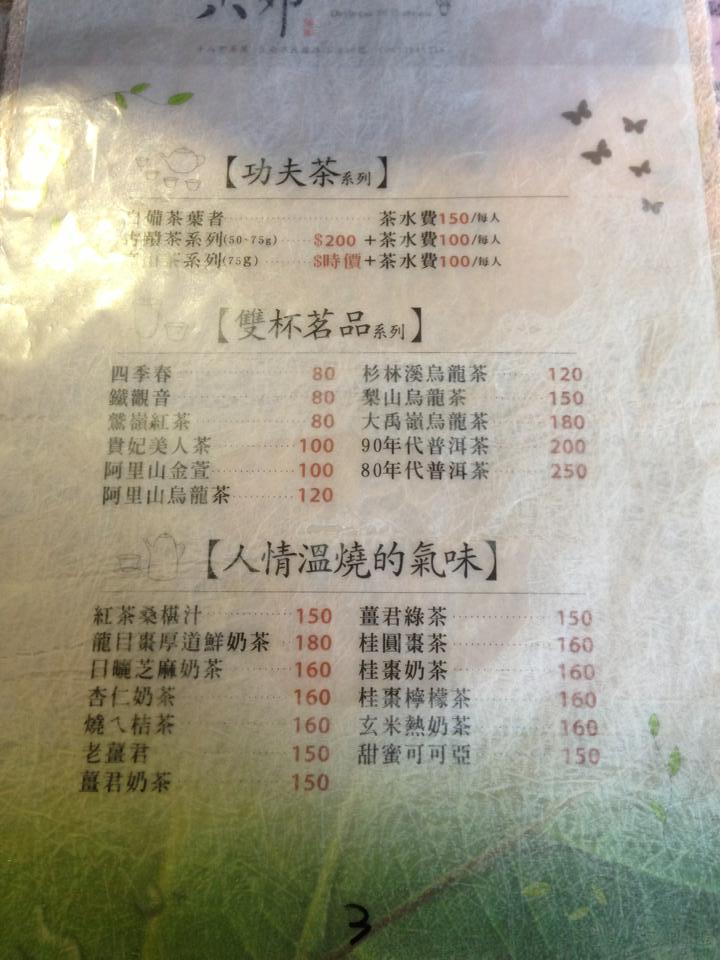 【功夫茶系列】
自備茶葉者 茶水費150/每人
茶系列(50-75g) $200 +茶水費100/每人
茶系列(75g) $時價+茶水費100/每人
【雙杯茗品系列】
四季春 80 杉林溪烏龍茶 120
鐵觀音 80 梨山烏龍茶 150
鷲嶺紅茶 80 大禹嶺烏龍茶 180
貴妃美人茶 100 90年代普洱茶 200
阿里山金萱 100 80年代普洱茶 250
阿里山烏龍茶 120
【人情溫燒的氣味】
紅茶桑椹汁 150 薑君綠茶 150
龍目棗厚道鮮奶茶 180 桂圓棗茶 160
日曬芝麻奶茶 160 桂棗奶茶 160
杏仁奶茶 160 桂棗檸檬茶 160
燒ㄟ桔茶 160 玄米熱奶茶 160
老薑君 150 甜蜜可可亞 150
薑君奶茶 150
3